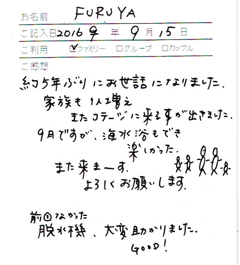 お名前 FURUYA
ご記入日 2016年 9月 15日
ご利用 ☑ファミリー □グループ □カップル
ご感想
約5年ぶりにお世話になりました。
家族も1人増え
またコテージに来る事が出来ました。
9月ですが、海水浴もでき
楽しかった。
また来まーす。
よろしくお願いします。
前回なかった
脱水機、大変助かりました。
GOOD!